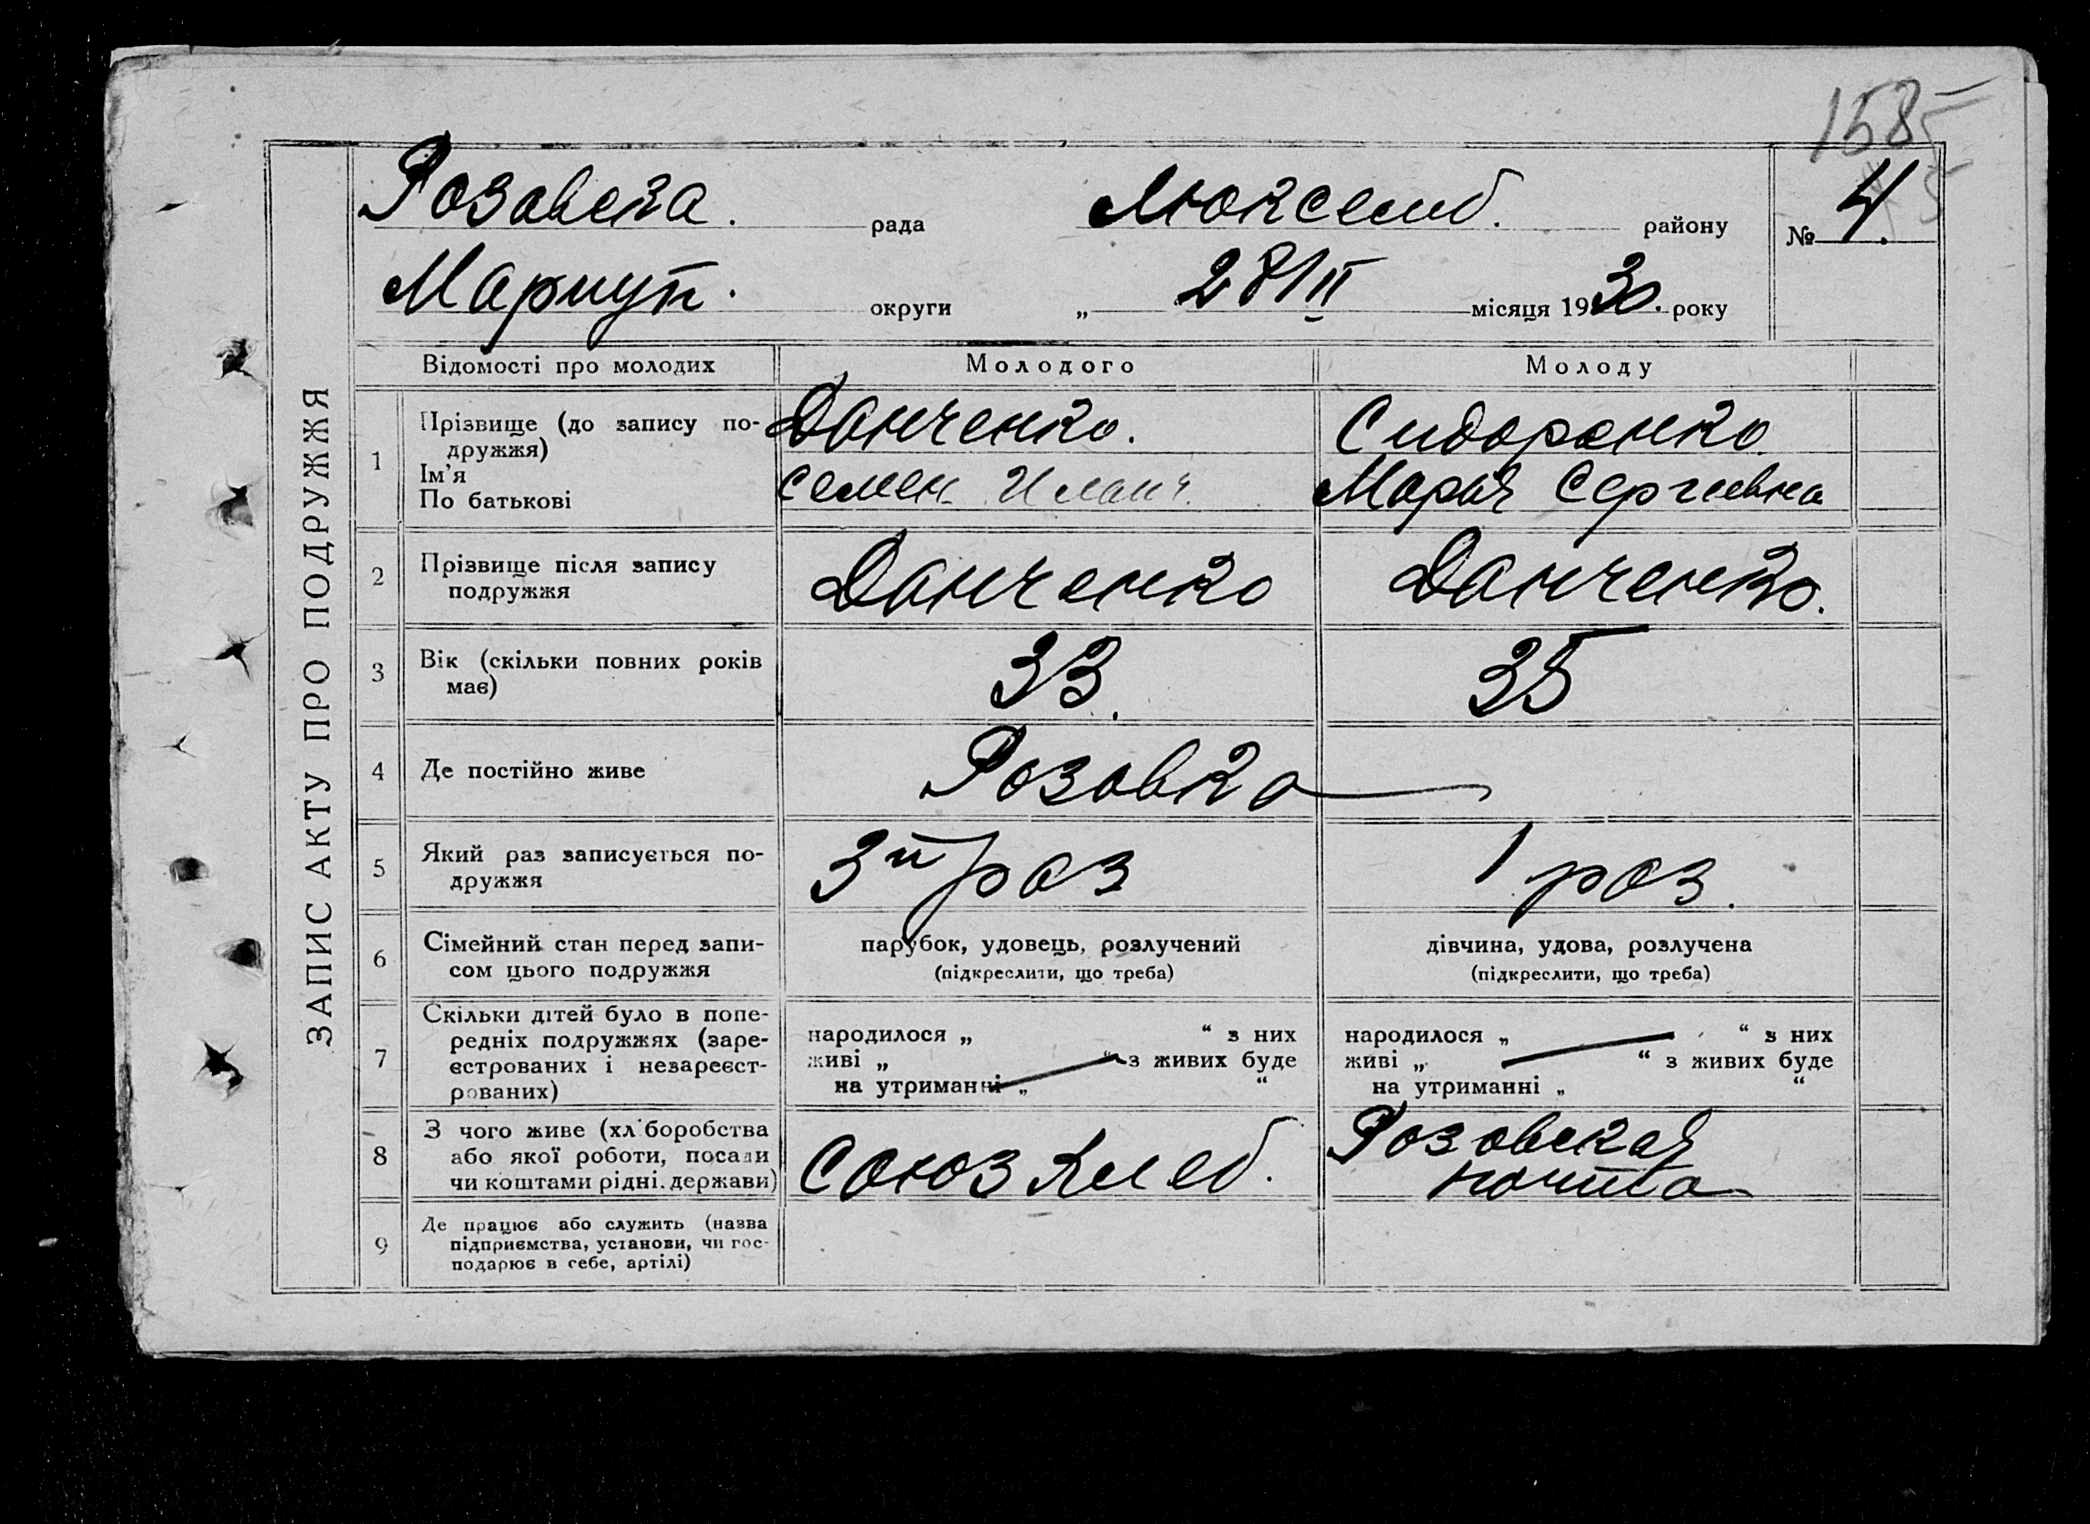 1585
ЗАПИС АКТУ ПРО ПОДРУЖЖЯ
Розовска. рада Люксемб. району № 4.
Мариуп. округи „ 28/II місяця 1930. року
Відомості про молодих Молодого Молоду
1 Прізвище (до запису по-
дружжя)
Ім’я
По батькові
Данченко.
Семен
Сидоренко.
Мария Сергиевна
2 Прізвище після запису
подружжя
Данченко Данченко.
3 Вік (скільки повних років
має)
33. 35
4 Де постійно живе Розовка
5 Який раз записується по-
дружжя
3й раз 1 раз.
6 Сімейний стан перед запи-
сом цього подружжя
парубок, удовець, розлучений
(підкреслити, що треба)
дівчина, удова, розлучена
(підкреслити, що треба)
7 Скільки дітей було в попе-
редніх подружжях (заре-
єстрованих і незареєст-
рованих)
народилося „ “ з них
живі „ “ з живих буде
на утриманні „ “
народилося „ “ з них
живі „ “ з живих буде
на утриманні „ “
8 З чого живе (хл боробства
або якої роботи, посади
чи коштами рідні. держави)
Союз Хлеб.
Розовская
почта
9 Де працює або служить (назва
підприємства, установи, чи гос-
подарює в себе, артілі)